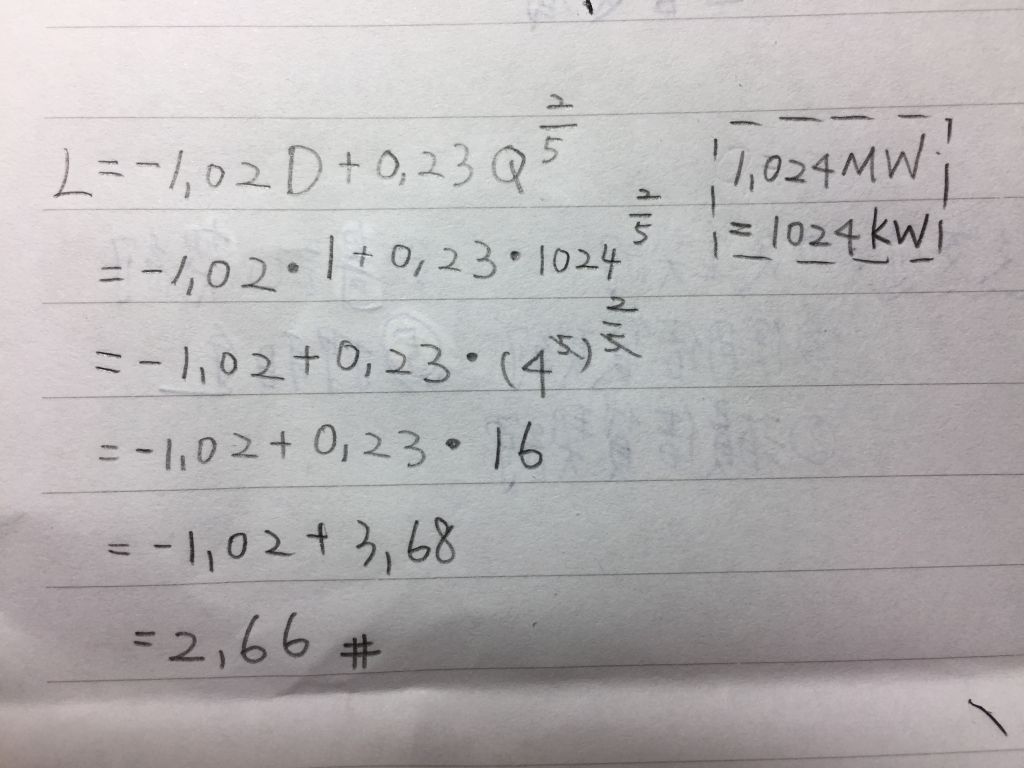 L = -1,02 D + 0,23 Q^(2/5)
1,024 MW
= 1024 kW
= -1,02 · 1 + 0,23 · 1024^(2/5)
= -1,02 + 0,23 · (4^5)^(2/5)
= -1,02 + 0,23 · 16
= -1,02 + 3,68
= 2,66 #